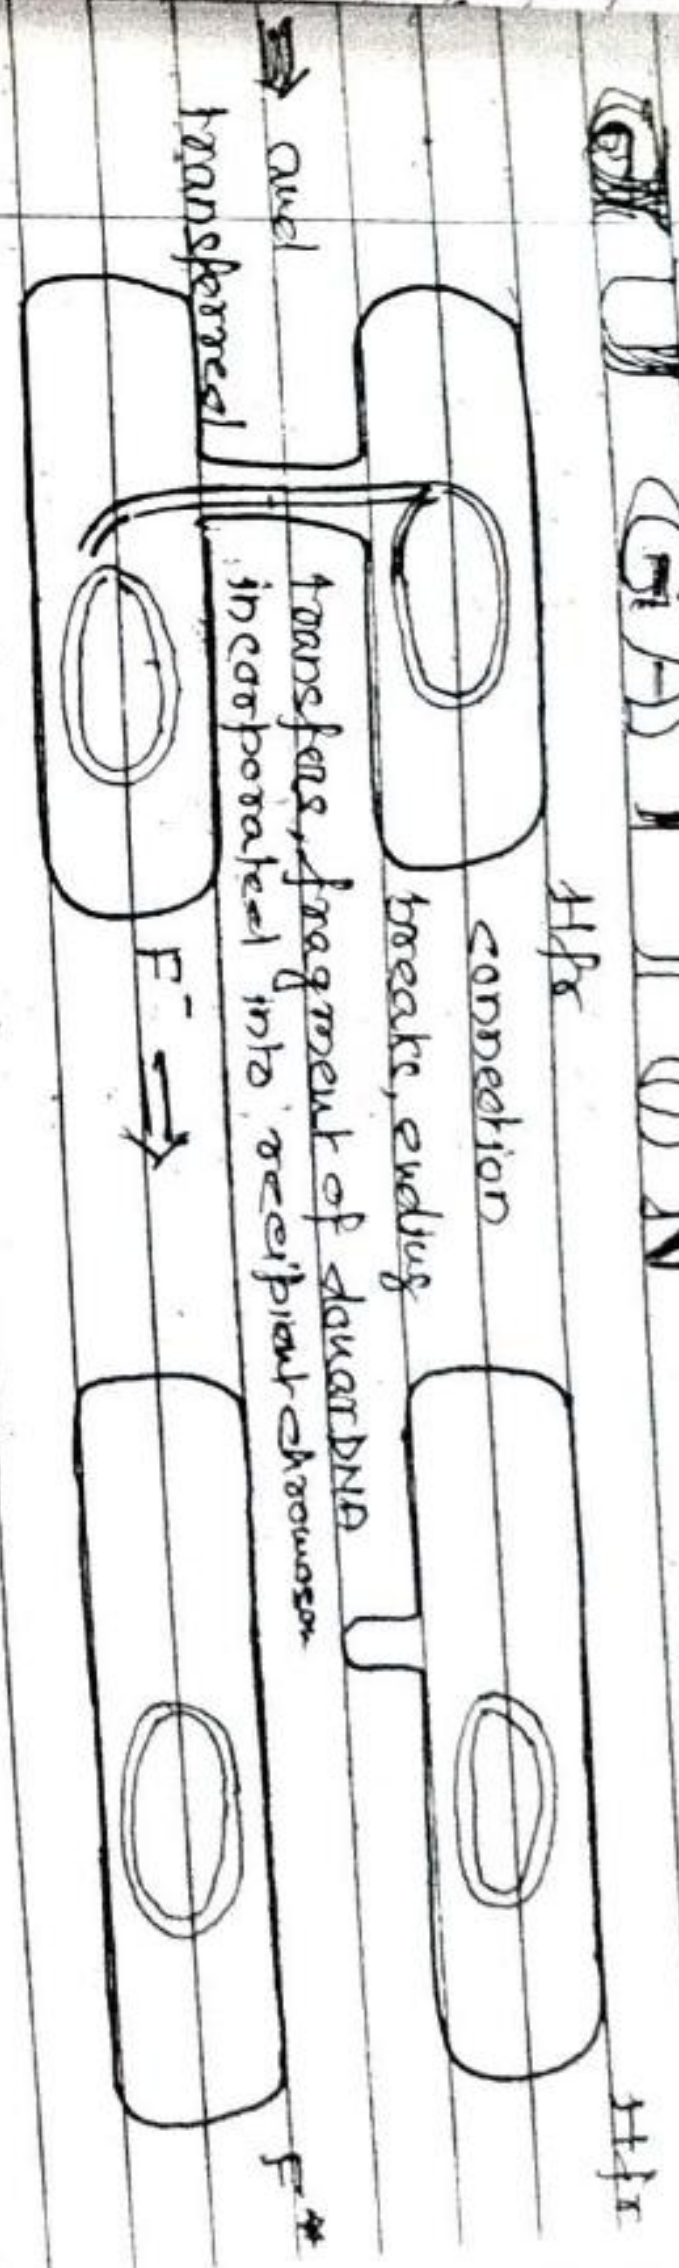 Hfr
Hfr
connection
breaks, ending
transfers, fragment of donar DNA
⇒ and
incorporated into recipiant chromosom
transferred
F⁻ ⇒
F⁺